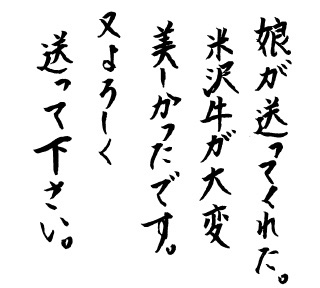 娘が送ってくれた。
米沢牛が大変
美しかったです。
又よろしく
送って下さい。